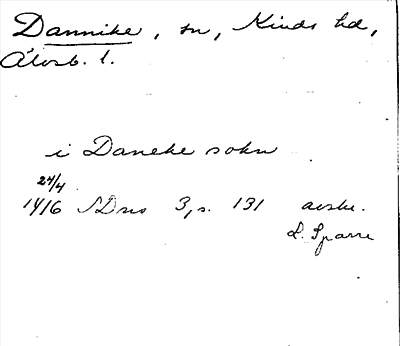 Dannike, sn, Kinds hd,
Älvsb. l.
i Daneke sokn
24/4
1416 SDns 3, s. 131 avskr.
L. Sparre